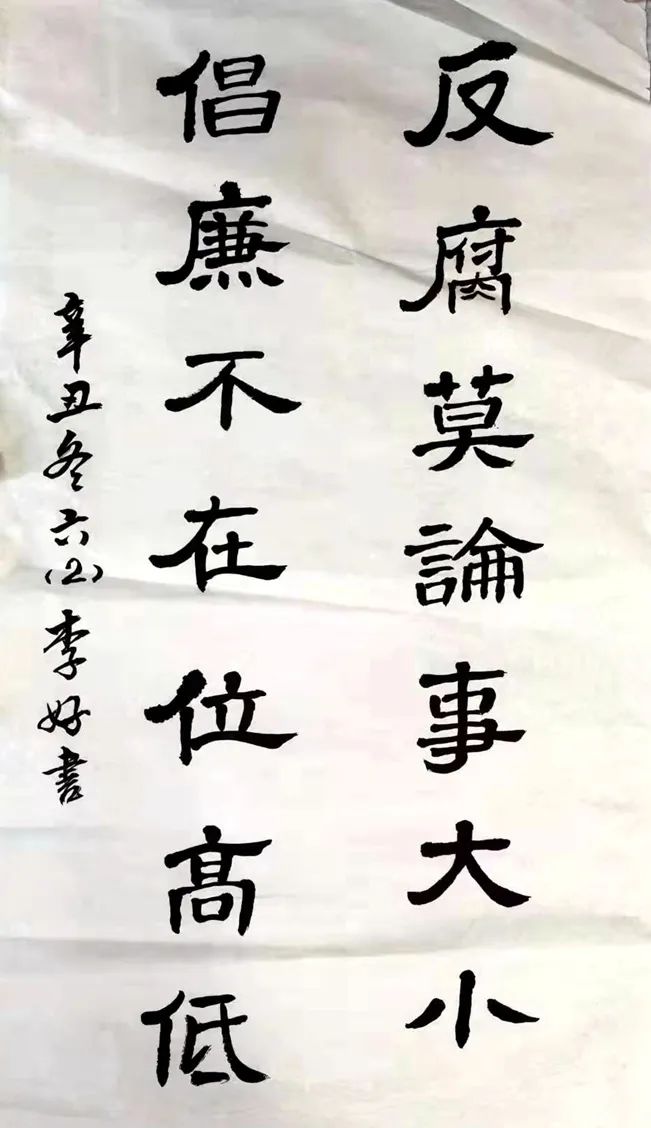 反腐莫論事大小
倡廉不在位高低
辛丑冬六(2)李好書